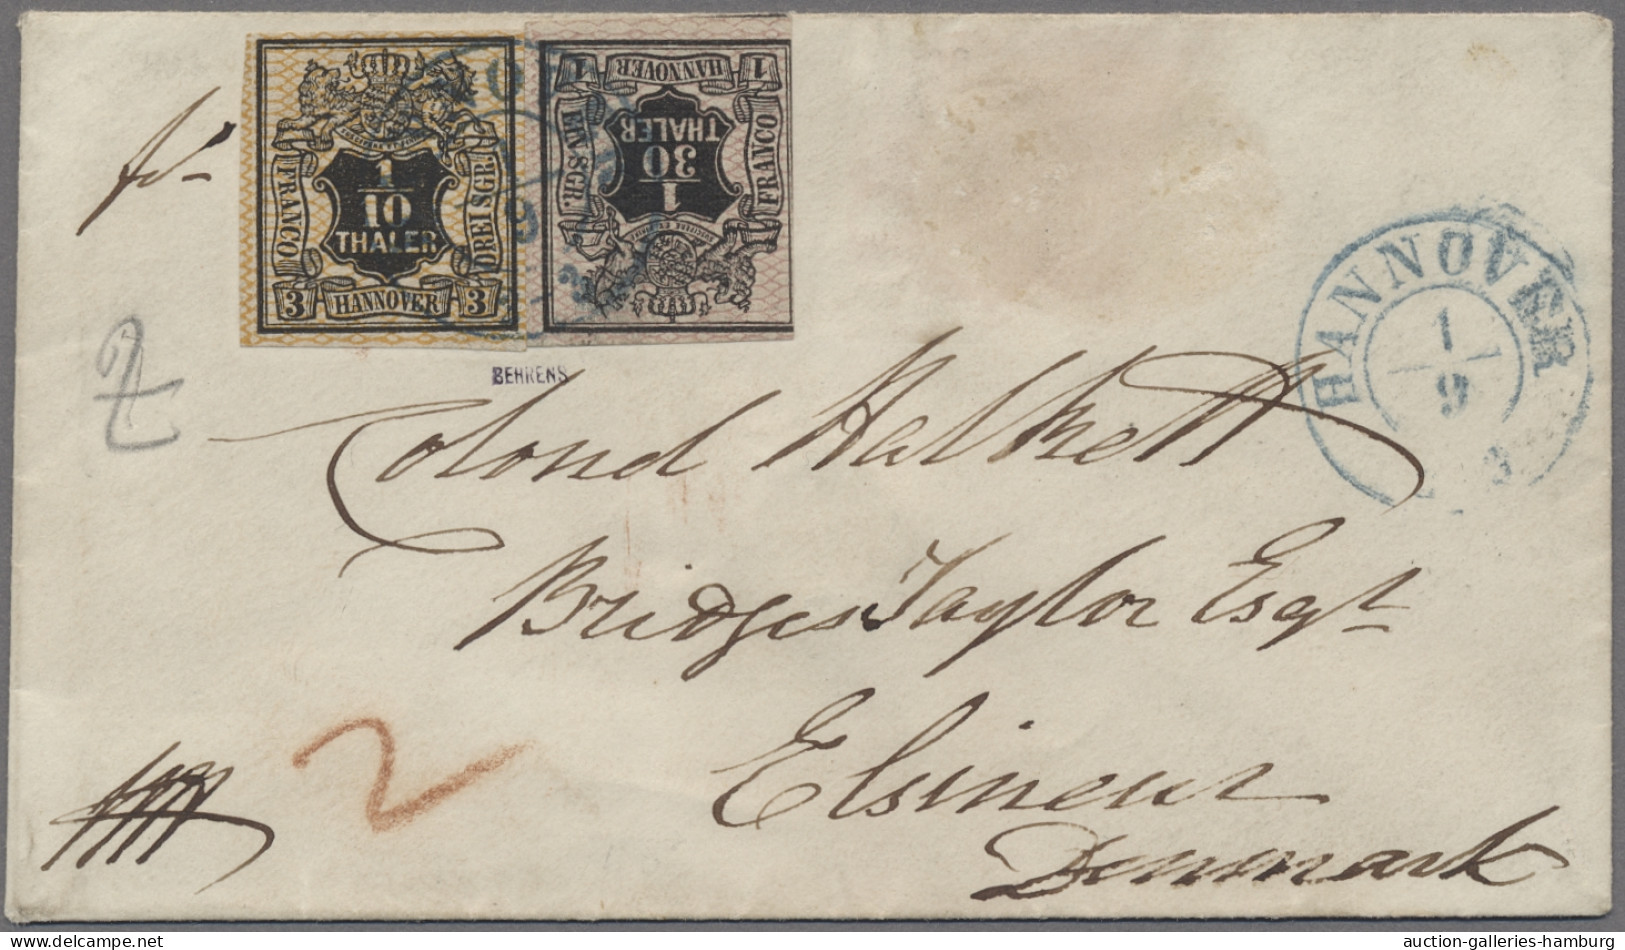 fr
1
10
THALER
FRANCO
DREI SGR.
3 HANNOVER 3
1 HANNOVER 1
EIN SGR.
FRANCO
THALER
30
1
BEHRENS
HANNOVER
1
9
3
2
Colonel Halkett
Bridges Taylor Esqr
Elsineur
Denmark
2
delcampe.net
auction-galleries-hamburg